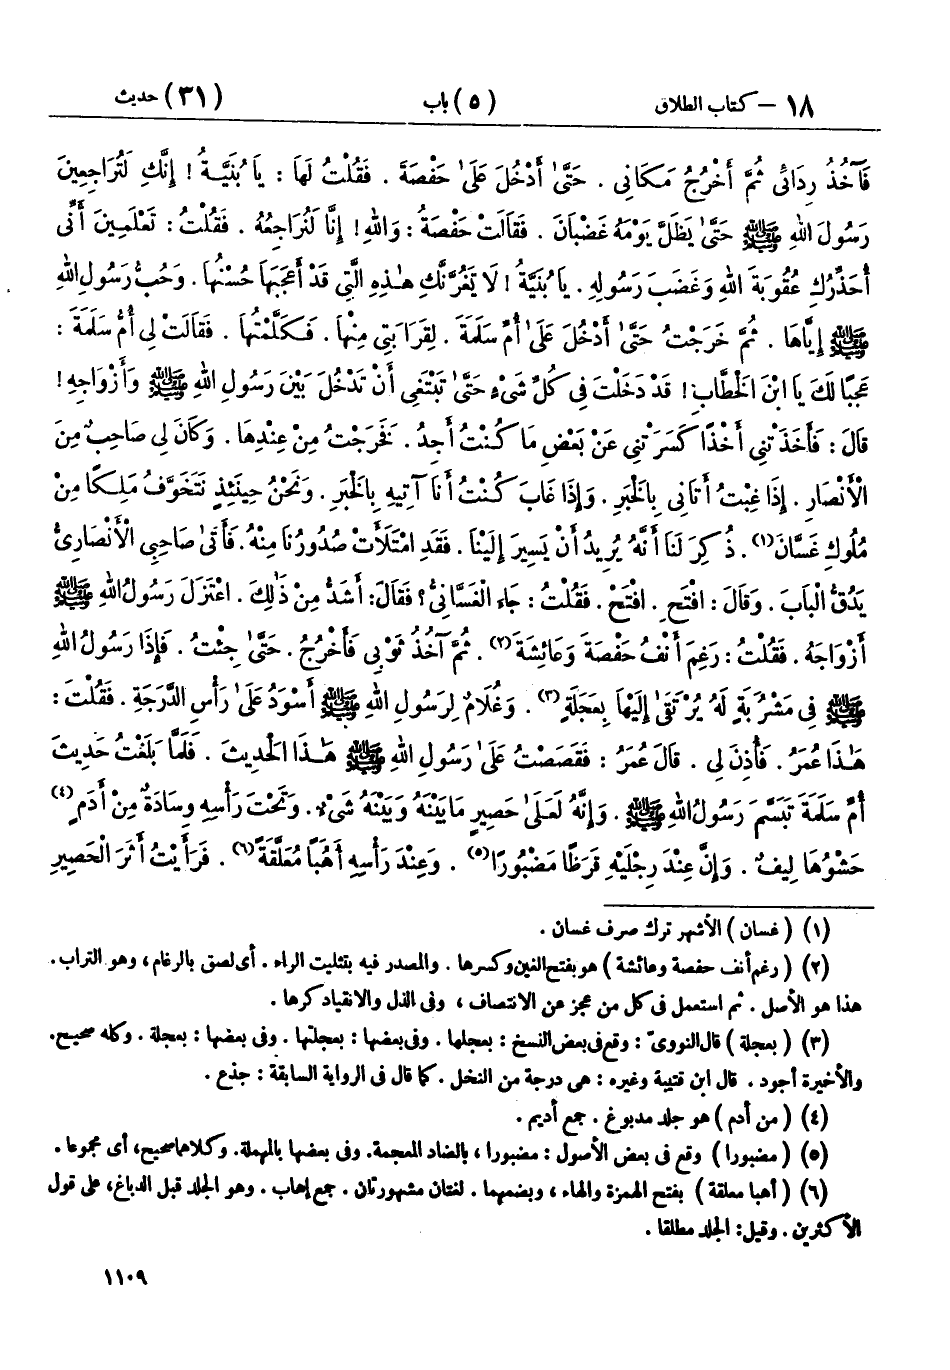 ١٨ – كتاب الطلاق (٥) باب (٣١) حديث
فَآخُذُ رِدَائِى ثُمَّ أَخْرُجُ مَكَانِي . حَتَّىٰ أَدْخُلَ عَلَىٰ حَفْصَةَ . فَقُلْتُ لَهَا : يَا بُنَيَّةُ ! إِنَّكِ لَتُرَاجِعِينَ
رَسُولَ اللهِ ﷺ حَتَّىٰ يَظَلَّ يَوْمَهُ غَضْبَانَ . فَقَالَتْ حَفْصَةُ : وَاللهِ! إِنَّا لَنُرَاجِعُهُ . فَقُلْتُ : تَعْلَمِينَ أَنِّى
أُحَذِّرُكِ عُقُوبَةَ اللهِ وَغَضَبَ رَسُولِهِ . يَا بُنَيَّةُ ! لَا يَغُرَّنَّكِ هٰذِهِ الَّتِي قَدْ أَعْجَبَهَا حُسْنُهَا . وَحُبُّ رَسُولِ اللهِ
ﷺ إِيَّاهَا . ثُمَّ خَرَجْتُ حَتَّىٰ أَدْخُلَ عَلَىٰ أُمِّ سَلَمَةَ . لِقَرَابَتِي مِنْهَا . فَكَلَّمْتُهَا . فَقَالَتْ لِى أُمُّ سَلَمَةَ :
عَجَبًا لَكَ يَا ابْنَ الْخَطَّابِ! قَدْ دَخَلْتَ فِي كُلِّ شَىْءٍ حَتَّىٰ تَبْتَغِىَ أَنْ تَدْخُلَ بَيْنَ رَسُولِ اللهِ ﷺ وَأَزْوَاجِهِ!
قَالَ : فَأَخَذَتْنِي أَخْذًا كَسَرَتْنِي عَنْ بَعْضِ مَا كُنْتُ أَجِدُ . فَخَرَجْتُ مِنْ عِنْدِهَا . وَكَانَ لِي صَاحِبٌ مِنَ
الْأَنْصَارِ . إِذَا غِبْتُ أَتَانِي بِالْخَبَرِ . وَإِذَا غَابَ كُنْتُ أَنَا آتِيهِ بِالْخَبَرِ . وَنَحْنُ حِينَئِذٍ نَتَخَوَّفُ مَلِكًا مِنْ
مُلُوكِ غَسَّانَ(١) . ذُكِرَ لَنَا أَنَّهُ يُرِيدُ أَنْ يَسِيرَ إِلَيْنَا . فَقَدِ امْتَلَأَتْ صُدُورُنَا مِنْهُ . فَأَتَىٰ صَاحِبِي الْأَنْصَارِىُّ
يَدُقُّ الْبَابَ . وَقَالَ : افْتَحِ . افْتَحْ . فَقُلْتُ : جَاءَ الْغَسَّانِىُّ ؟ فَقَالَ: أَشَدُّ مِنْ ذَٰلِكَ . اعْتَزَلَ رَسُولُ اللهِ ﷺ
أَزْوَاجَهُ . فَقُلْتُ : رَغِمَ أَنْفُ حَفْصَةَ وَعَائِشَةَ(٢) . ثُمَّ آخُذُ ثَوْبِي فَأَخْرُجُ . حَتَّىٰ جِئْتُ . فَإِذَا رَسُولُ اللهِ
ﷺ فِي مَشْرُبَةٍ لَهُ يُرْتَقَىٰ إِلَيْهَا بِعَجَلَةٍ(٣) . وَغُلَامٌ لِرَسُولِ اللهِ ﷺ أَسْوَدُ عَلَىٰ رَأْسِ الدَّرَجَةِ . فَقُلْتُ :
هٰذَا عُمَرُ . فَأُذِنَ لِي . قَالَ عُمَرُ : فَقَصَصْتُ عَلَىٰ رَسُولِ اللهِ ﷺ هٰذَا الْحَدِيثَ . فَلَمَّا بَلَغْتُ حَدِيثَ
أُمِّ سَلَمَةَ تَبَسَّمَ رَسُولُ اللهِ ﷺ . وَإِنَّهُ لَعَلَىٰ حَصِيرٍ مَا بَيْنَهُ وَبَيْنَهُ شَىْءٌ . وَتَحْتَ رَأْسِهِ وِسَادَةٌ مِنْ أَدَمٍ(٤)
حَشْوُهَا لِيفٌ . وَإِنَّ عِنْدَ رِجْلَيْهِ قَرَظًا مَضْبُورًا(٥) . وَعِنْدَ رَأْسِهِ أَهَبًا مُعَلَّقَةً(٦) . فَرَأَيْتُ أَثَرَ الْحَصِيرِ
(١) ( غسان ) الأشهر ترك صرف غسان .
(٢) ( رغم أنف حفصة وعائشة ) هو بفتح الغين وكسرها . والمصدر فيه بتثليث الراء . أى لصق بالرغام ، وهو التراب .
هذا هو الأصل . ثم استعمل فى كل من عجز عن الانتصاف ، وفى الذل والانقياد كرها .
(٣) ( بعجلة ) قال النووىّ : وقع فى بعض النسخ : بعجلها . وفى بعضها : بعجلتها . وفى بعضها : بعجلة . وكله صحيح.
والأخيرة أجود . قال ابن قتيبة وغيره : هى درجة من النخل . كما قال فى الرواية السابقة : جذع .
(٤) ( من أدم ) هو جلد مدبوغ . جمع أديم .
(٥) ( مضبورا ) وقع فى بعض الأصول : مضبورا ، بالضاد المعجمة. وفى بعضها بالمهملة. وكلاهما صحيح، أى مجموعا .
(٦) ( أهبا معلقة ) بفتح الهمزة والهاء ، وبضمهما . لغتان مشهورتان . جمع إهاب . وهو الجلد قبل الدباغ، على قول
الأكثرين . وقيل: الجلد مطلقا .
١١٠٩